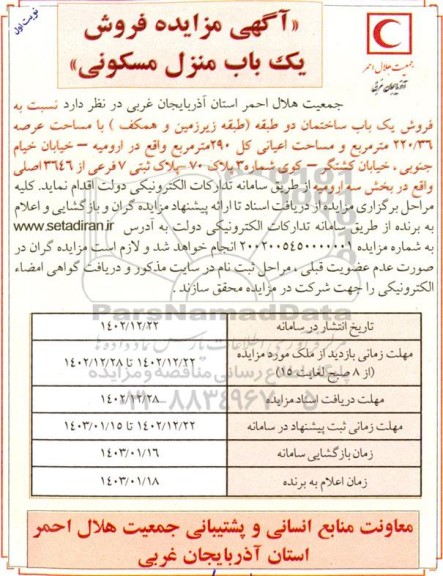 نوبت اول
«آگهی مزایده فروش
یک باب منزل مسکونی»
جمعیت هلال احمر
آذربایجان غربی
جمعیت هلال احمر استان آذربایجان غربی در نظر دارد نسبت به
فروش یک باب ساختمان دو طبقه (طبقه زیرزمین و همکف ) با مساحت عرصه
۲۲۰/۳۶ مترمربع و مساحت اعیانی کل ۲۹۰مترمربع واقع در ارومیه – خیابان خیام
جنوبی ، خیابان کشتگر – کوی شماره۳ پلاک ۷۰ –پلاک ثبتی ۷ فرعی از ۳۶۴۶ اصلی
واقع در بخش سه ارومیه از طریق سامانه تدارکات الکترونیکی دولت اقدام نماید. کلیه
مراحل برگزاری مزایده از دریافت اسناد تا ارائه پیشنهاد مزایده گران و بازگشایی و اعلام
به برنده از طریق سامانه تدارکات الکترونیکی دولت به آدرس www.setadiran.ir
به شماره مزایده ۲۰۰۲۰۰۵۴۵۰۰۰۰۰۰۱ انجام خواهد شد و لازم است مزایده گران در
صورت عدم عضویت قبلی ، مراحل ثبت نام در سایت مذکور و دریافت گواهی امضاء
الکترونیکی را جهت شرکت در مزایده محقق سازند .
ParsNamadData
تاریخ انتشار در سامانه ۱۴۰۲/۱۲/۲۲
مهلت زمانی بازدید از ملک مورد مزایده ۱۴۰۲/۱۲/۲۲ تا ۱۴۰۲/۱۲/۲۸
(از ۸ صبح لغایت ۱۵)
پایگاه اطلاع رسانی مناقصه و مزایده
مهلت دریافت اسناد مزایده ۱۴۰۲/۱۲/۲۸
۰۲۱-۸۸۳۴۹۶۷۰-۵
مهلت زمانی ثبت پیشنهاد در سامانه ۱۴۰۲/۱۲/۲۲ تا ۱۴۰۳/۰۱/۱۵
زمان بازگشایی سامانه ۱۴۰۳/۰۱/۱۶
زمان اعلام به برنده ۱۴۰۳/۰۱/۱۸
معاونت منابع انسانی و پشتیبانی جمعیت هلال احمر
استان آذربایجان غربی